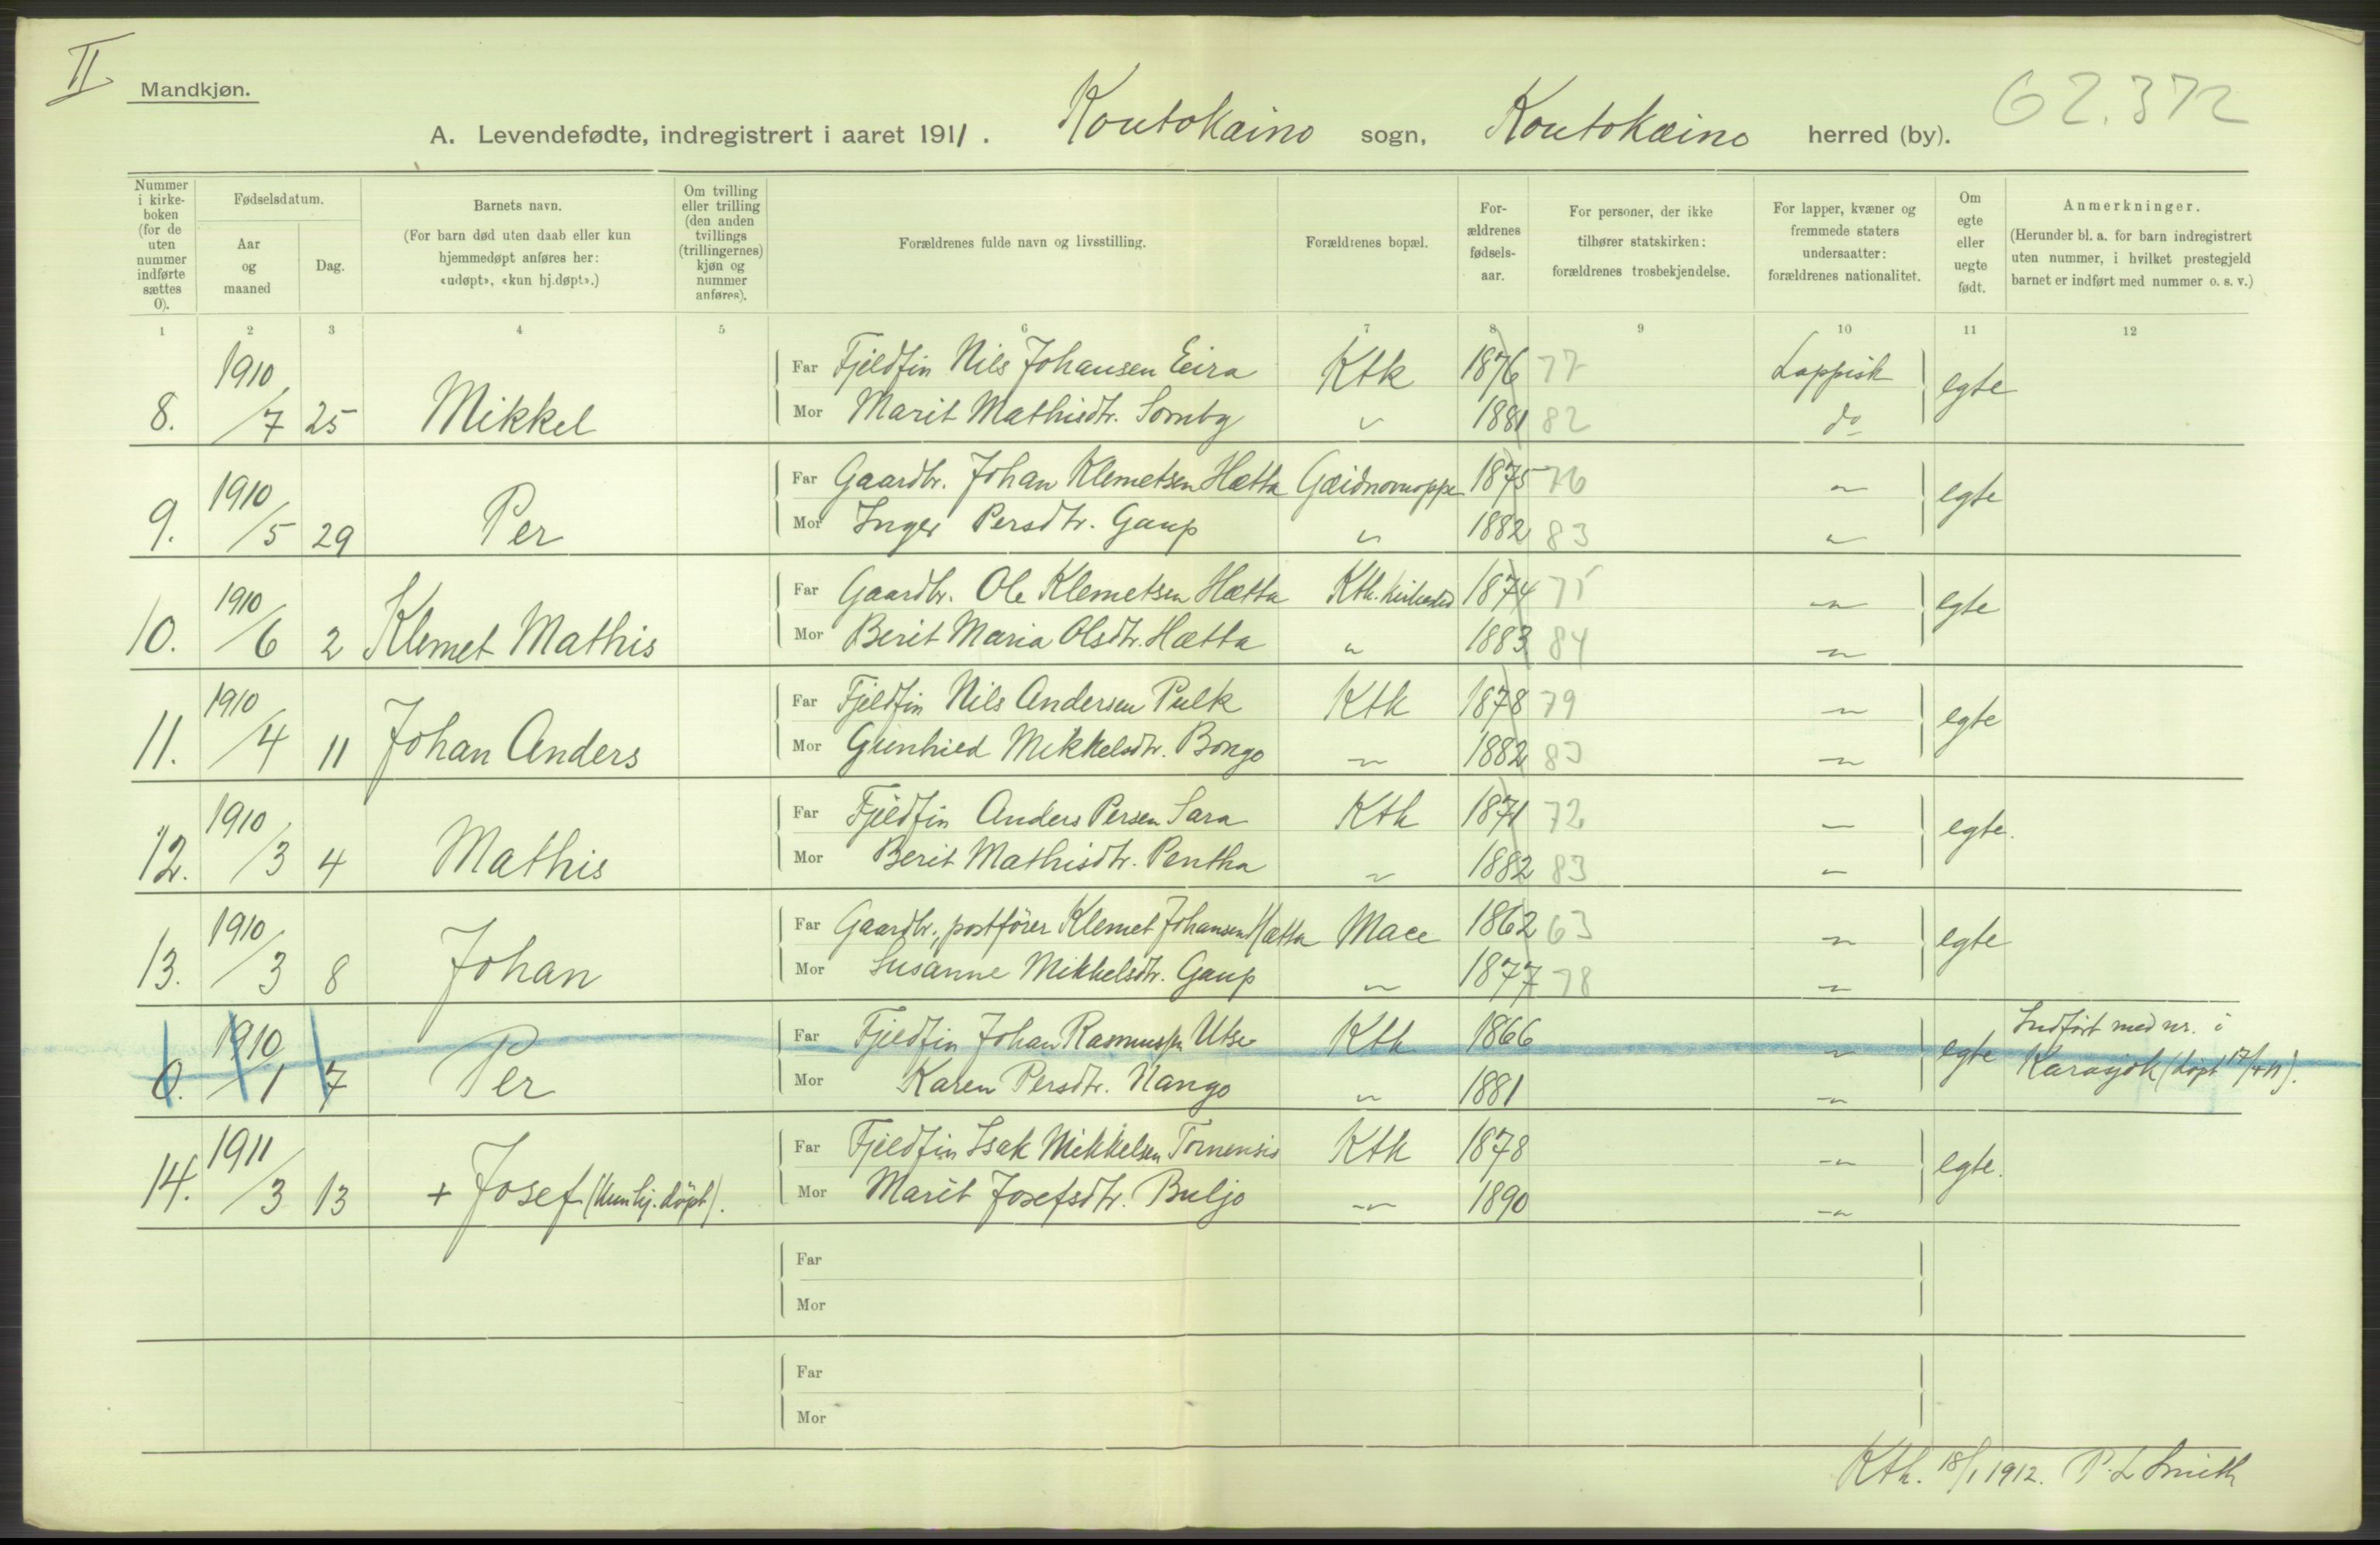 II
Mandkjøn.
62.372
A. Levendefødte, indregistrert i aaret 1911. Koutokæino sogn, Koutokæino herred (by).
Nummer i kirkeboken (for de uten nummer indførte sættes 0).
Fødselsdatum.
Aar og maaned
Dag.
Barnets navn.
(For barn død uten daab eller kun hjemmedøpt anføres her: «udøpt», «kun hj.døpt».)
Om tvilling eller trilling (den anden tvillings (trillingernes) kjøn og nummer anføres).
Forældrenes fulde navn og livsstilling.
Forældrenes bopæl.
Forældrenes fødselsaar.
For personer, der ikke tilhører statskirken: forældrenes trosbekjendelse.
For lapper, kvæner og fremmede staters undersaatter: forældrenes nationalitet.
Om egte eller uegte født.
Anmerkninger.
(Herunder bl. a. for barn indregistrert uten nummer, i hvilket prestegjeld barnet er indført med nummer o. s. v.)
1 2 3 4 5 6 7 8 9 10 11 12
8. 1910/7 25 Mikkel
Far Fjeldfin Nils Johansen Eira Ktk 1876 77 Lappisk egte
Mor Marit Mathisdtr. Somby " 1881 82 do
9. 1910/5 29 Per
Far Gaardbr. Johan Klemetsen Hætta Gæidnomoppe 1875 76 " egte
Mor Inger Persdtr. Gaup " 1882 83 "
10. 1910/6 2 Klemet Mathis
Far Gaardbr. Ole Klemetsen Hætta Ktk. kirkested 1874 75 " egte
Mor Berit Maria Olsdtr. Hætta " 1883 84 "
11. 1910/4 11 Johan Anders
Far Fjeldfin Nils Andersen Pulk Ktk 1878 79 " egte
Mor Gunhild Mikkelsdtr. Bongo " 1882 83 "
12. 1910/3 4 Mathis
Far Fjeldfin Anders Persen Sara Ktk 1871 72 " egte.
Mor Berit Mathisdtr. Pentha " 1882 83 "
13. 1910/3 8 Johan
Far Gaardbr., postfører Klemet Johansen Hætta Mace 1862 63 " egte
Mor Susanne Mikkelsdtr. Gaup " 1877 78 "
0. 1910/1 7 Per
Far Fjeldfin Johan Rasmussen Utse Ktk 1866 " egte Indført med nr. i
Mor Karen Persdtr. Nango " 1881 " Karasjok (døpt 17/4 11).
14. 1911/3 13 + Josef (kun hj. døpt).
Far Fjeldfin Isak Mikkelsen Tornensis Ktk 1878 " egte.
Mor Marit Josefsdtr. Buljo " 1890 "
Far
Mor
Far
Mor
Ktk. 18/1 1912. P. L Smith